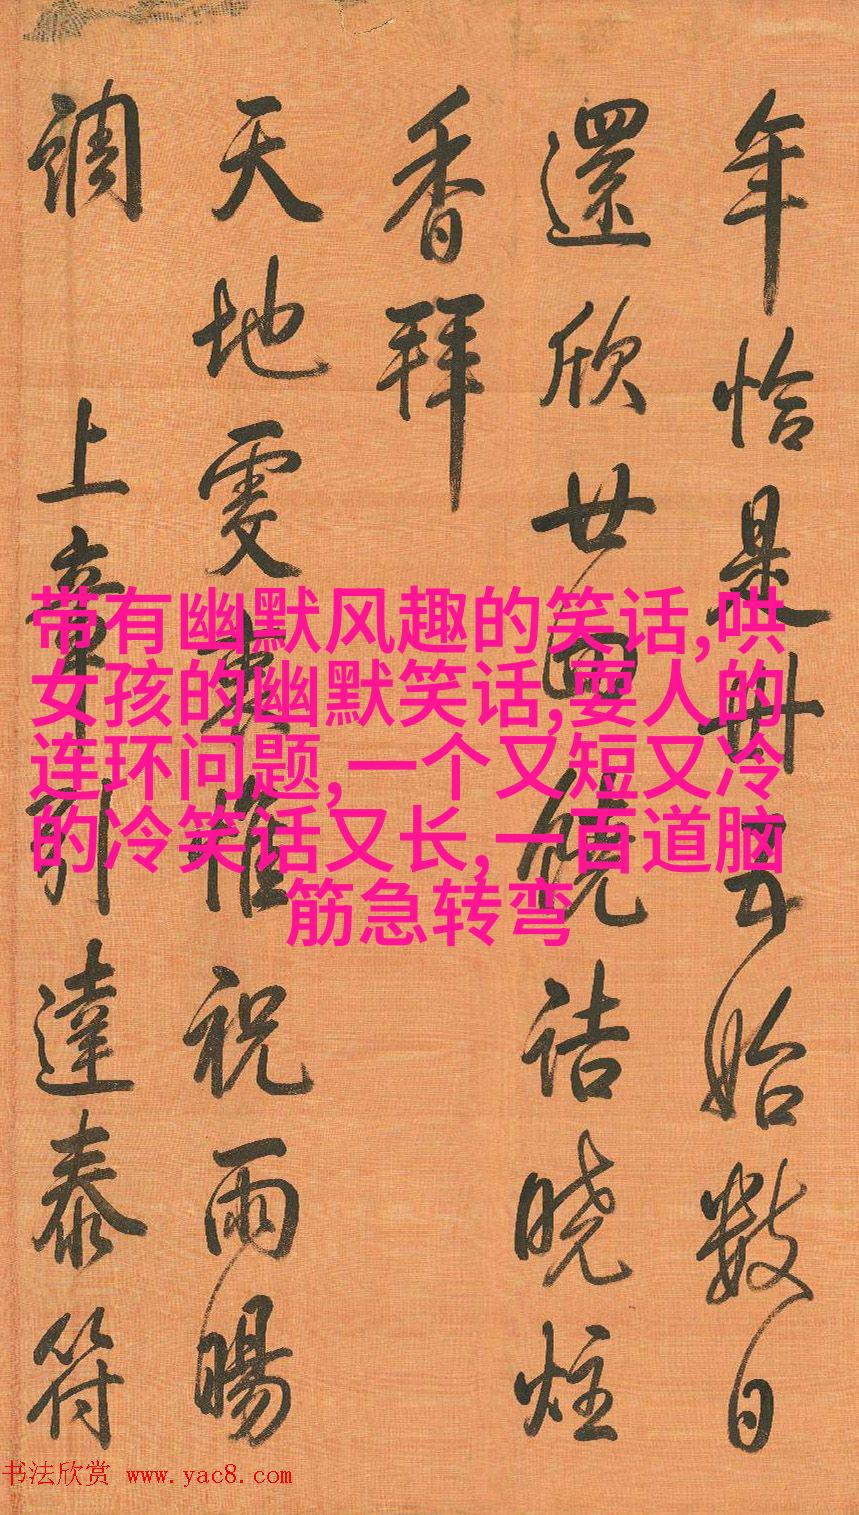 年恰是卅五始數日
還欣廿四饒詰曉炷
香拜
天地虔衷惟祝雨暘
調 上辛引達泰符
带有幽默风趣的笑话,哄
女孩的幽默笑话,耍人的
连环问题,一个又短又冷
的冷笑话又长,一百道脑
筋急转弯
书法欣赏 www.yac8.com